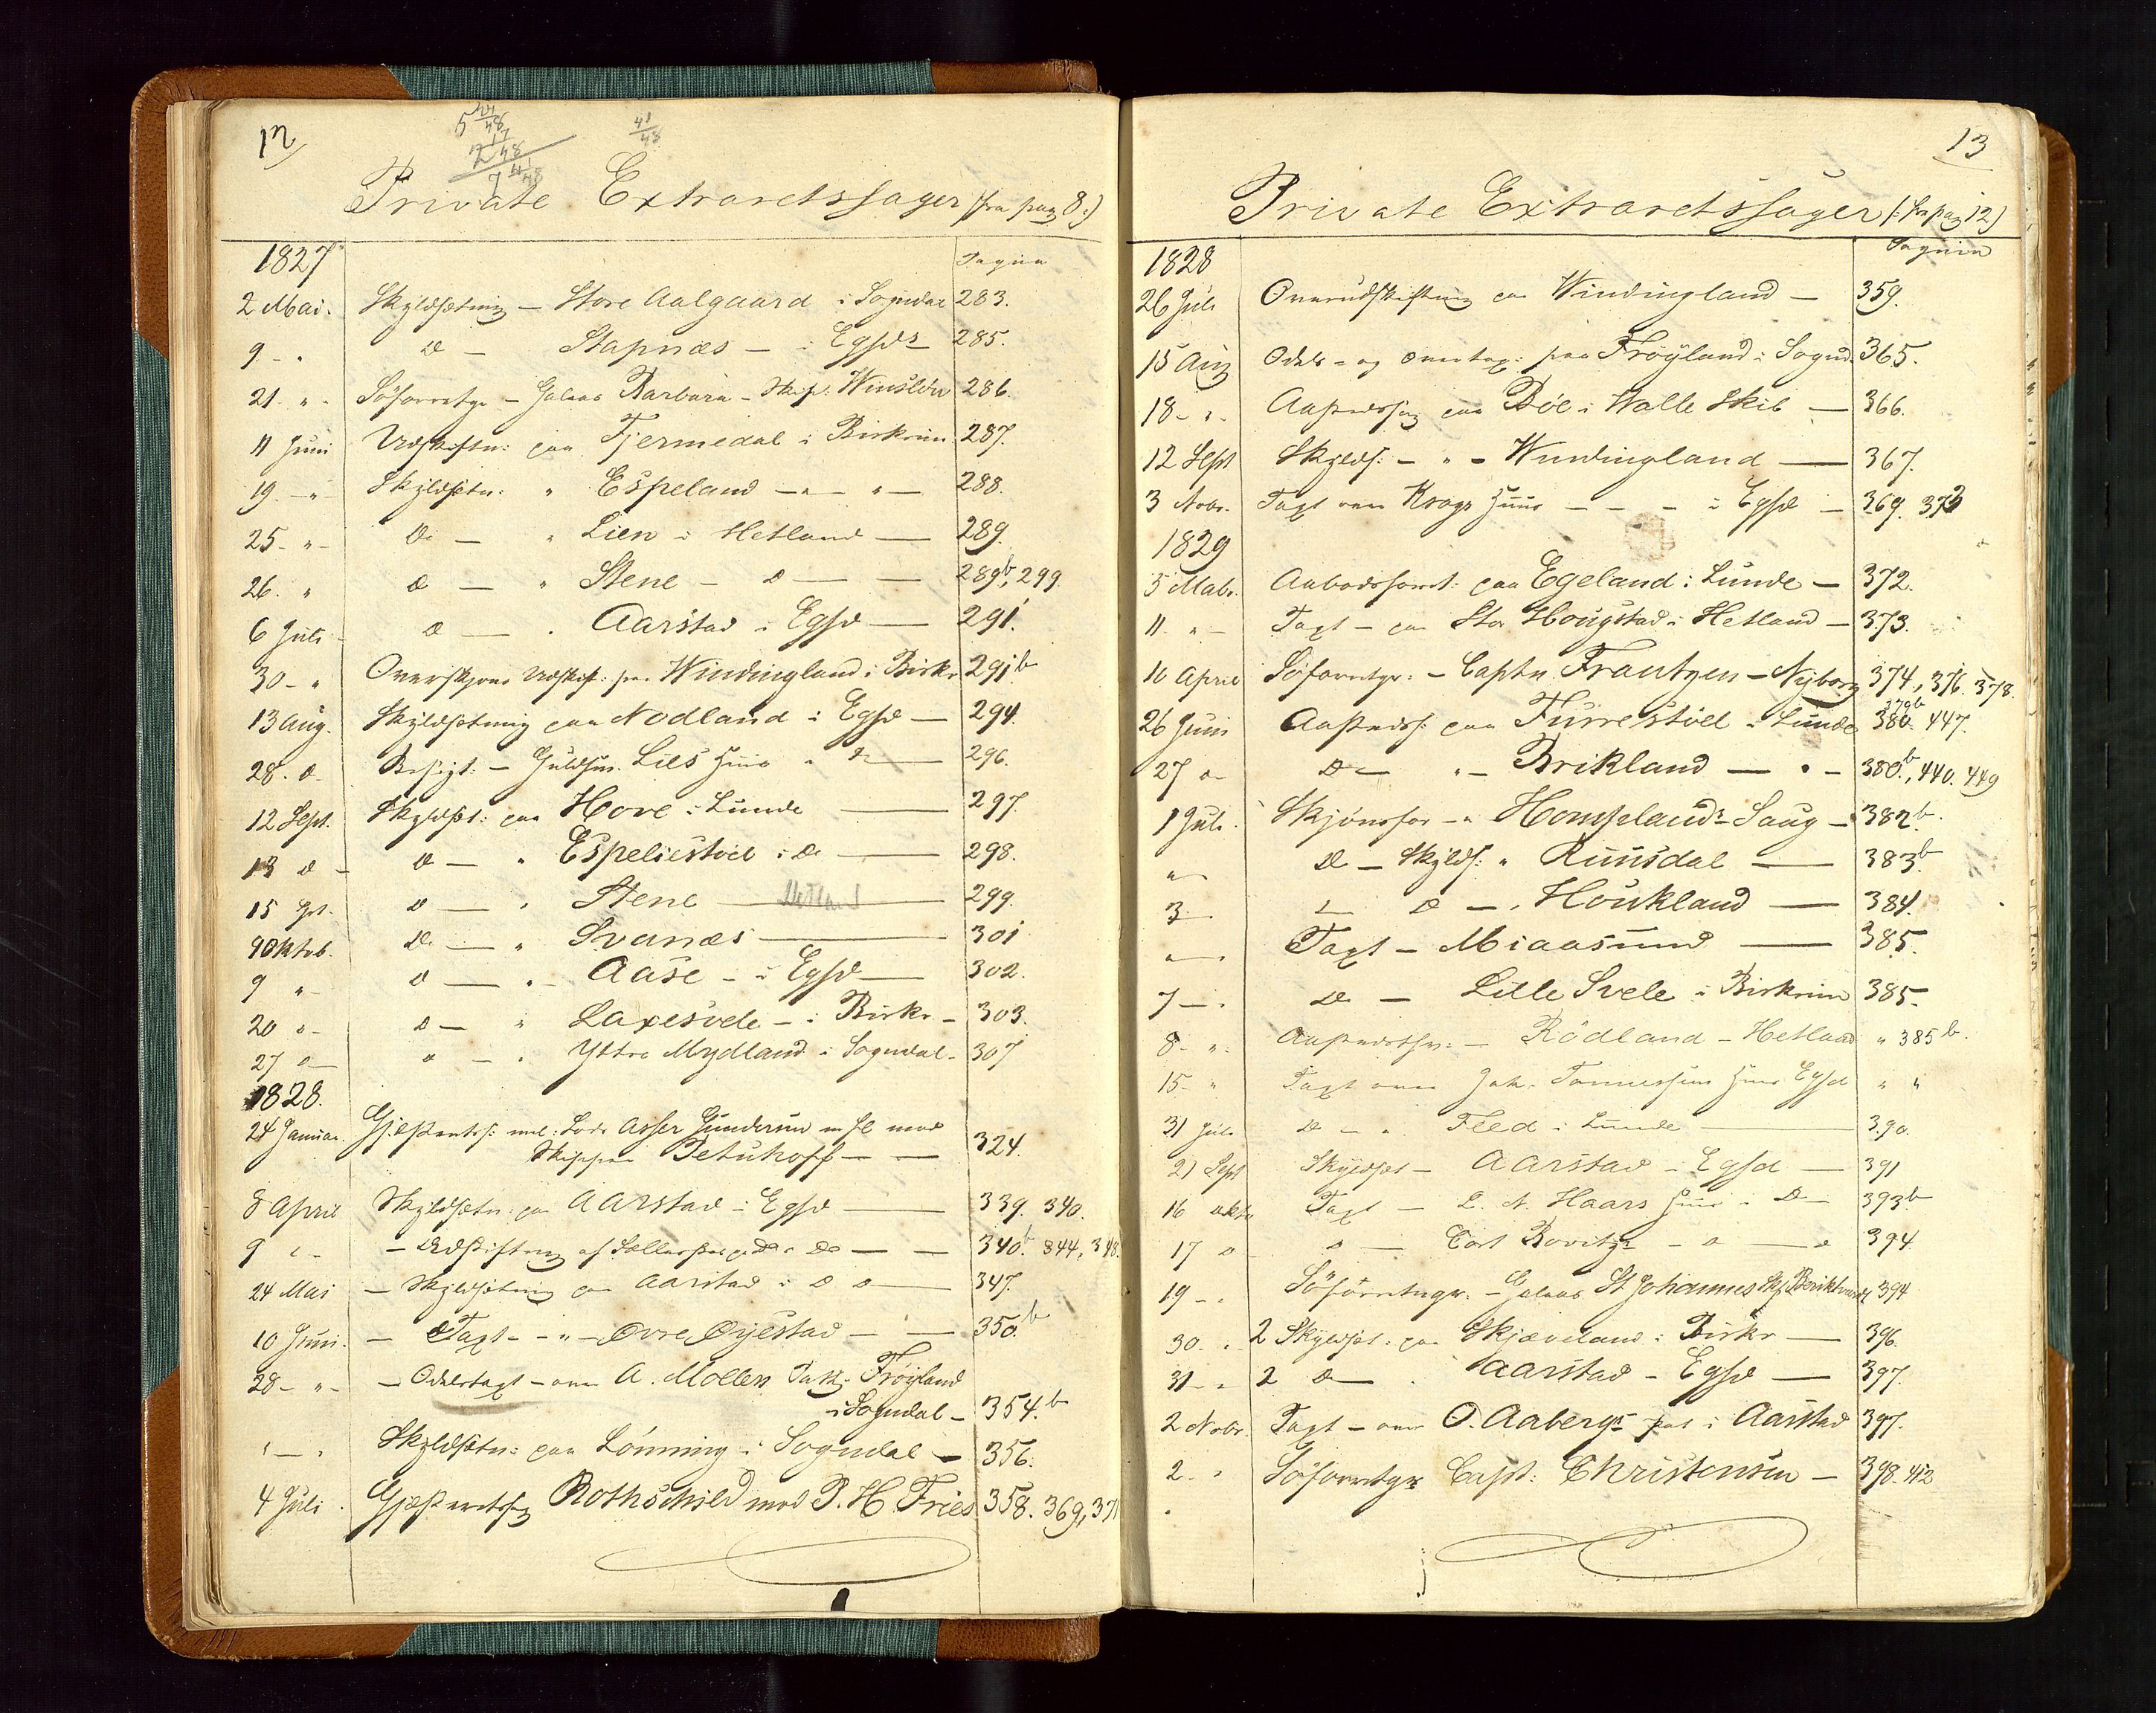 12
5 21/48
2 17/48
7 41/48
41/48
Private Extraretssager (fra pag 8:)
1827 Pagina
2 Mai. Skyldsætning – Store Aalgaard i Sogndal 283.
9 - " D – Stapnæs – i Egsd 285.
21 " - Söforretgr – Galeas Barbara – Skip: 286.
11 Juni Udskiftn: paa Tjermedal i Birkrim. 287.
19 - " Skyldsætn: " Espeland – " – " – 288.
25 - " - Do – " Lien i Hetland — 289.
26. " D — " Stene – D — — 289b, 299
6 Juli - D — . Aarstad i Egsd — 291.
30 - " Overskjøns Udskift: paa Windingland i Birkr 291b
13 Aug. Skyldsætning paa Nodland i Egsd — 294.
28. D Besigt: – Guldsm. Lies Huus " D — 296.
12 Sept. Skyldsæt: paa Hove i Lunde — 297.
13 D - D — " Espeliestøel i Do — 298.
15 D — " Stene — Hetland 299.
9 Oktob. Do — " Svanæs — 301
9 " D — " – Aase – i Egsd — 302.
20 D - D — " Laxesvele – i Birkr – 303.
27 D D — . Yttre Mydland i Sogndal – 307
1828.
24 Januar. Gjæsteretss: mel: Lods Asser Gunderson m fl mod
Skipper Petuhoff — — 324.
8 April Skyldsætn: paa Aarstad i Egsd — 339. 340.
9 " - – Udskiftning af i Do — — 340b. 344, 348.
24 Mai – Skyldsætning paa Aarstad i D D — 347.
10 Juni. – Taxt – " – Øvre Øyestad — — 350.b
28 - " - – Odelstaxt – over A. Mollers Frøyland
i Sogndal – 354.b
" — " Skyldsætn: paa Lönning i Sogndal – 356.
4 Juli . Gjæsteretssag Rothschild mod P. H. Fries 358. 369, 371
13
Private Extraretssager (: fra pag 12)
1828 Pagina
26 Juli Overudskiftning paa Windingland — 359.
15 Aug Odels - og Overtax: paa Frøyland i Sognd. 365.
18 - " - Aastedssag paa Böe i Walle Skib — 366.
12 Sept Skylds: – " – Windingland — 367.
3 Nobr. Taxt over Krogs Huus – – – i Egsd – 369. 373
1829
5 Aabodsforret: paa Egeland i Lunde – 372.
11. " - Taxt – paa Stor Hougstad i Hetland – 373.
16 April Söforretgr: – Captn Frantzen – Nyborg 374, 376. 378.
379b
26 Juni Aasteds: paa Furrestöel i Lunde 380. 447.
27 D D — " – Brikland — " – 380b., 440. 449
1 Juli. Skjönsfor – " Hompland – Saug – 382b.
" D – Skylds: " Ruusdal — 383b
3 — " D – . Houkland — 384.
" Taxt – Miaasund — 385.
7 — . Do – Lille Svele i Birkrim 385 -
8 - ": – Rödland – Hetland " 385b.
15 - " Taxt over Joh. Tönnessens Huus Egsd " "
31 Juli D – " Feed i Lunde — 390.
21 Sept Skyldsæt – Aarstad i Egsd — 391
16 Oktr Taxt – L. A. Haars Huus i D — 393b
17 D D — Carl Bovitz – D — D 394
19 - . Söforretngr. – Galeas St Johannes Skp 394
30. . 2 Skyldsæt: paa Skjæveland i Birkr — 396.
31 - " 2 D — . Aarstad – Egsd — 397.
2 Nobr. Taxt – over O. Aabergs i Aarstad 397.
2. " Söforretgr Capt: Christensen – 398. 412